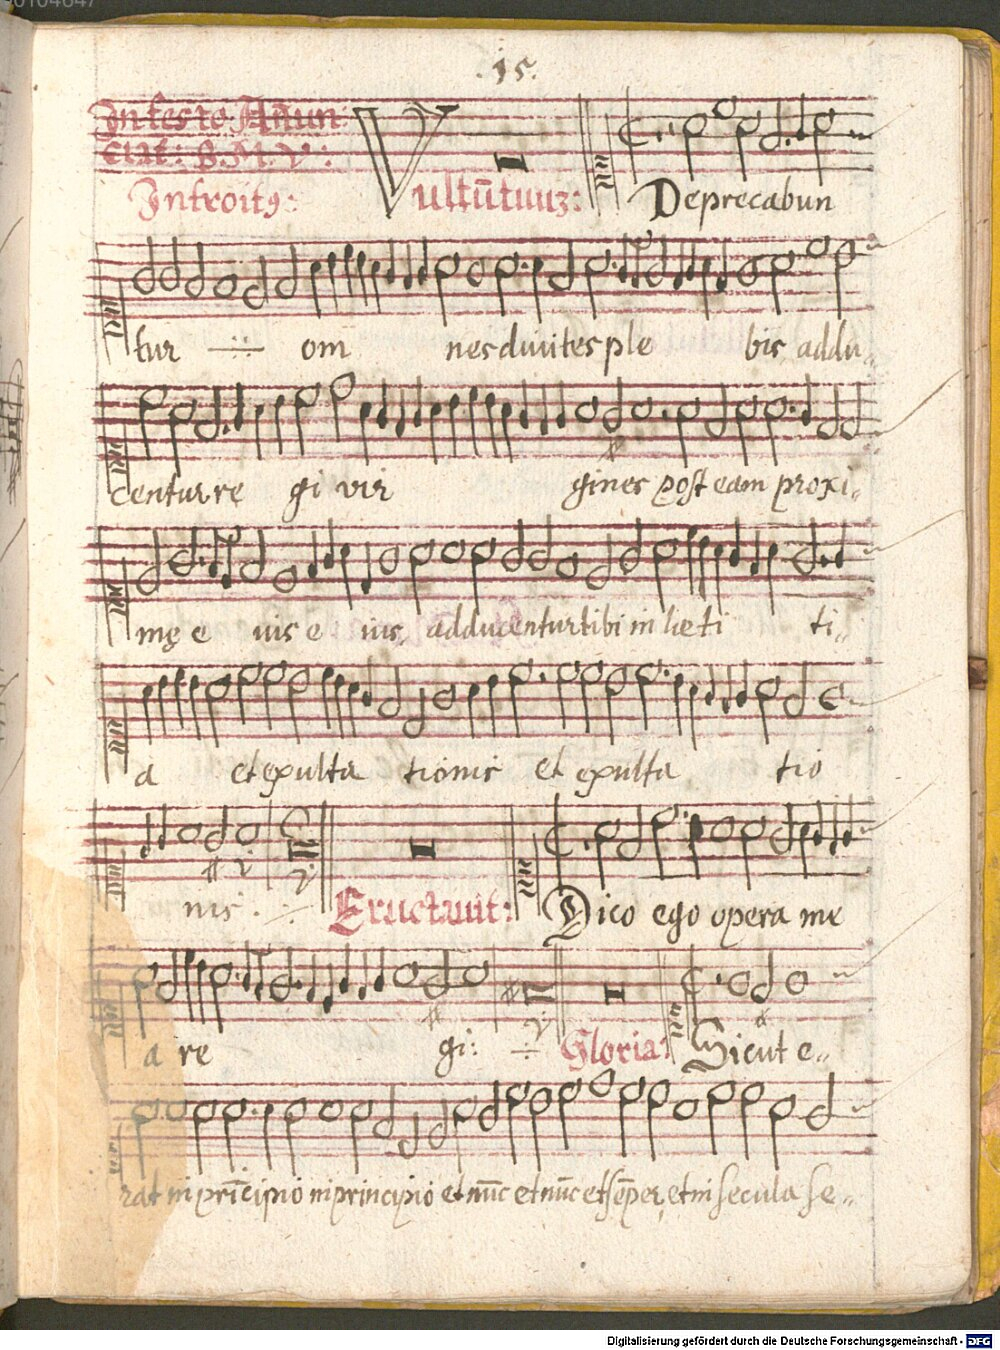 .15.
In festo Añun
ciat: B. M. V:
Introitq: Vultūtuuz: Deprecabun
tur om nes diuites ple bis addu„
centur re gi vir gines post eam proxi„
mę e ius e ius, adducentur tibi in lieti ti„
a et exulta tionis et exulta tio
nis. Eructauit: Dico ego opera me
a re gi: Gloria: Sicut e„
rat in prīcipio in principio et nūc et nūc et sēper, et in secula se„
Digitalisierung gefördert durch die Deutsche Forschungsgemeinschaft - DFG